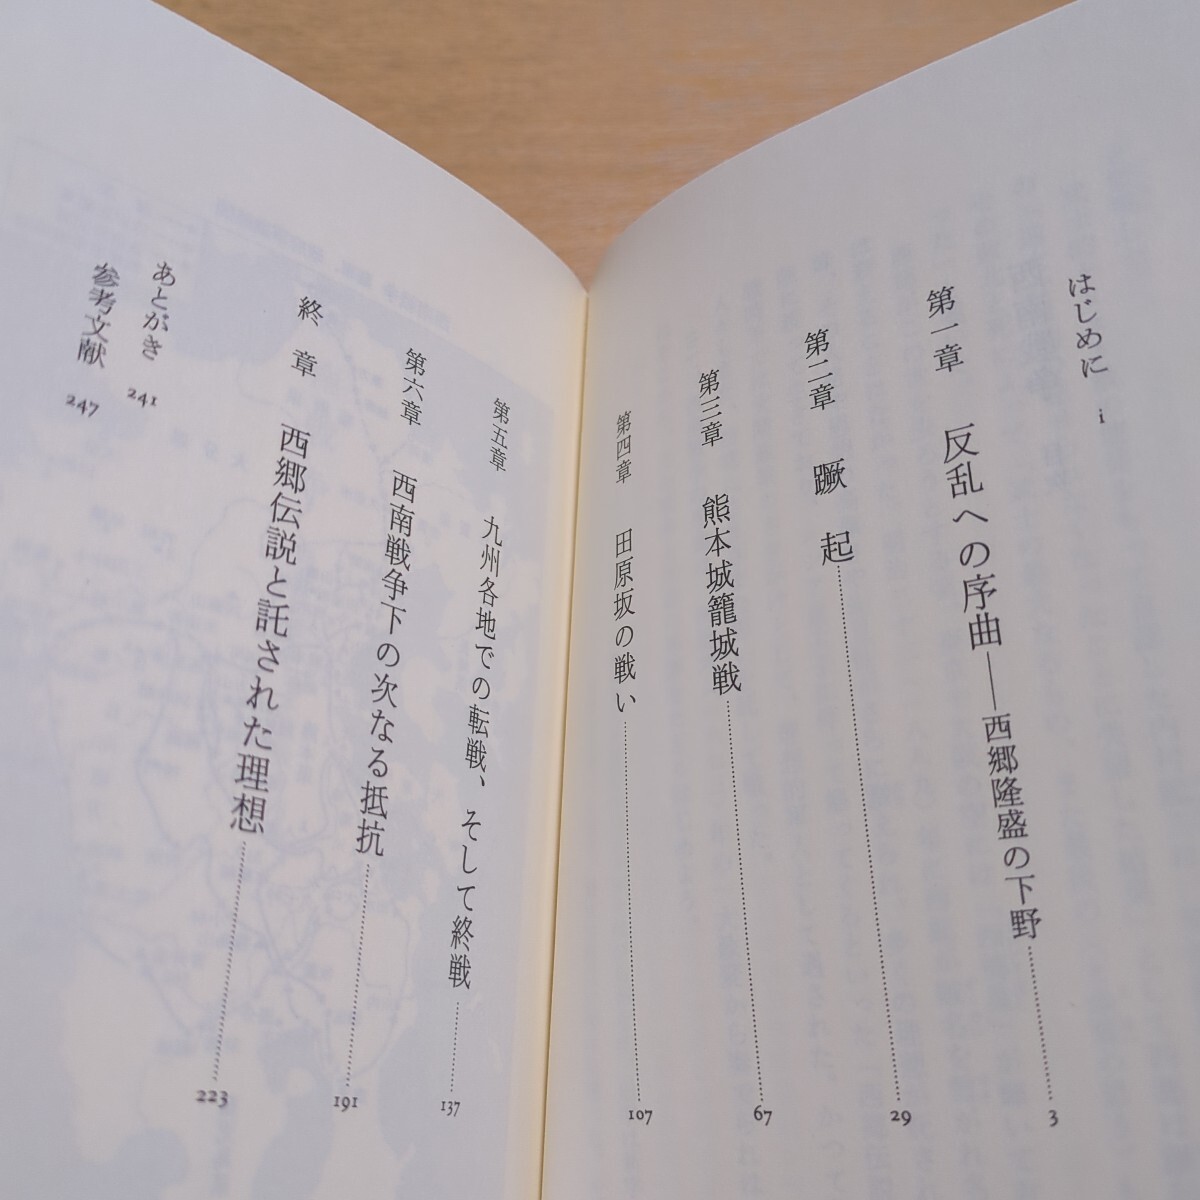 はじめに i
第一章 反乱への序曲――西郷隆盛の下野 3
第二章 蹶起 29
第三章 熊本城籠城戦 67
第四章 田原坂の戦い 107
第五章 九州各地での転戦、そして終戦 137
第六章 西南戦争下の次なる抵抗 191
終章 西郷伝説と託された理想 223
あとがき 241
参考文献 247